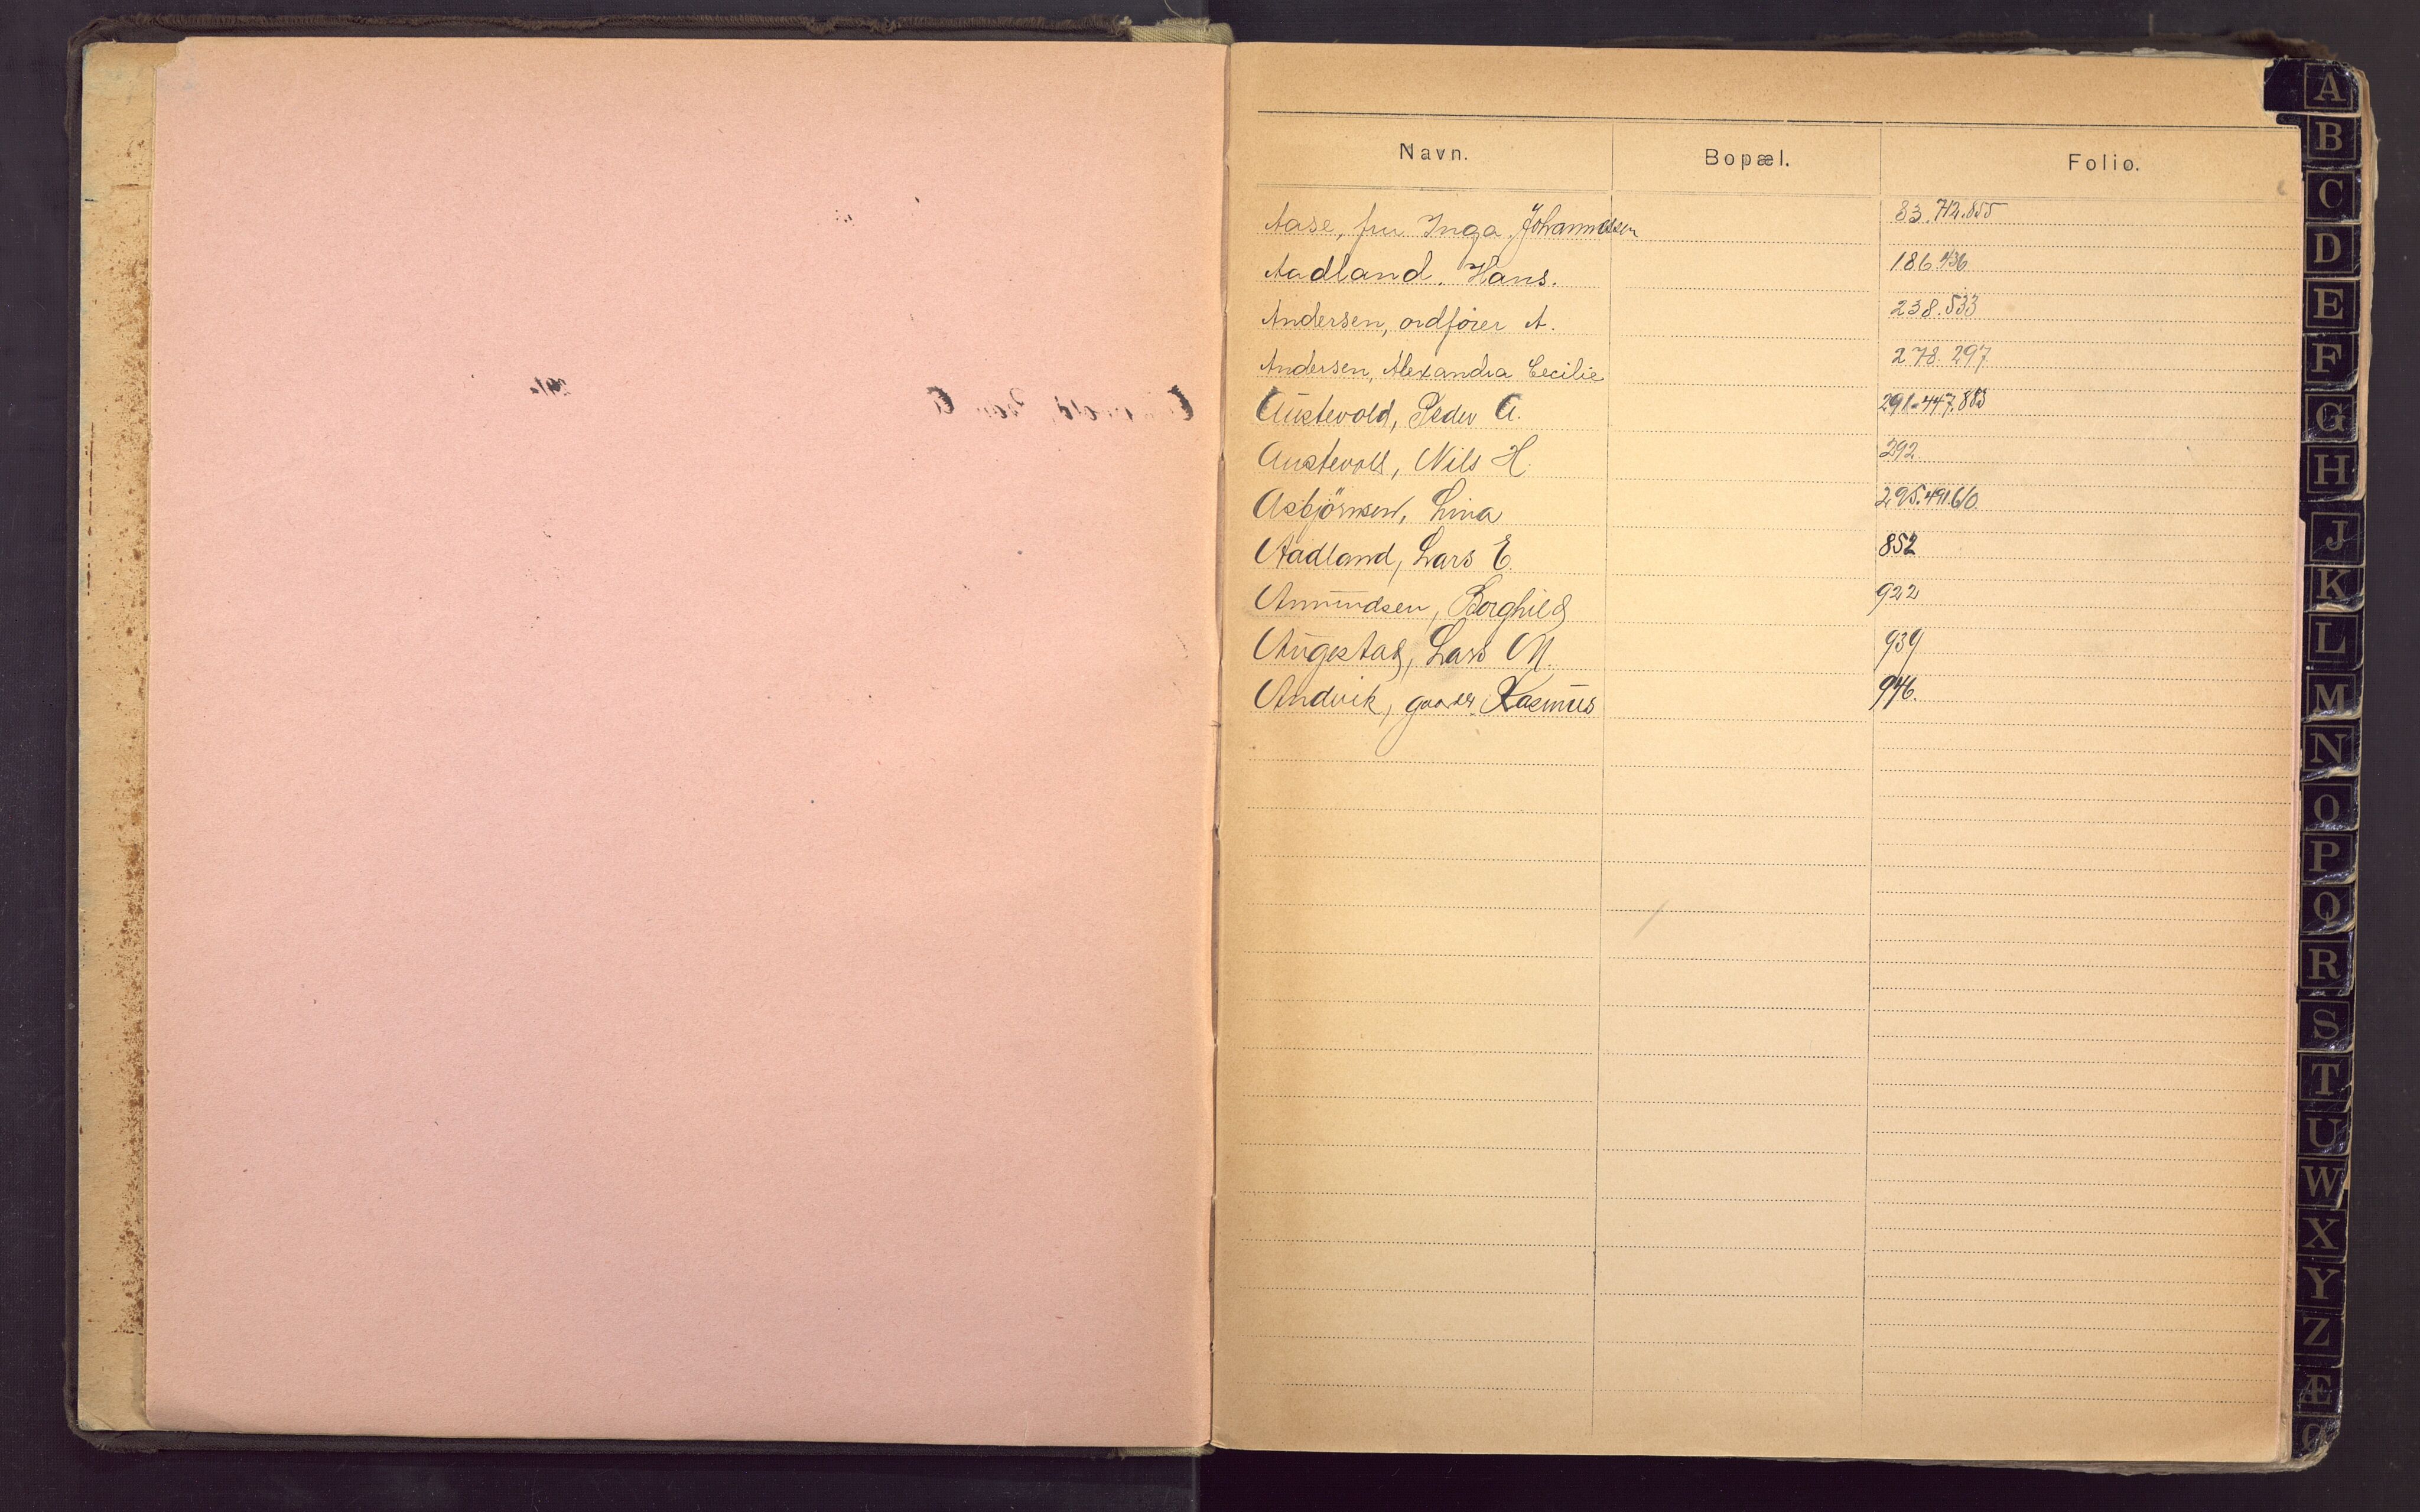 Navn. Bopæl. Folio.
Aase, fru Inga Johannessen 83. 712. 855
Aadland, Hans. 186. 436
Andersen, ordfører A. 238. 533
Andersen, Alexandra Cecilie 278. 297.
Austevold, Peder A. 291. 447. 883
Austevoll, Nils H. 292.
Asbjörnsen, Lina 295. 491. 610.
Aadland, Lars E. 852
Amundsen, Borghild 922
Augestad, Lars M. 939
Andvik, Rasmus 946.
A
B
C
D
E
F
G
H
J
K
L
M
N
O
P
Q
R
S
T
U
W
X
Y
Z
Æ
Ø